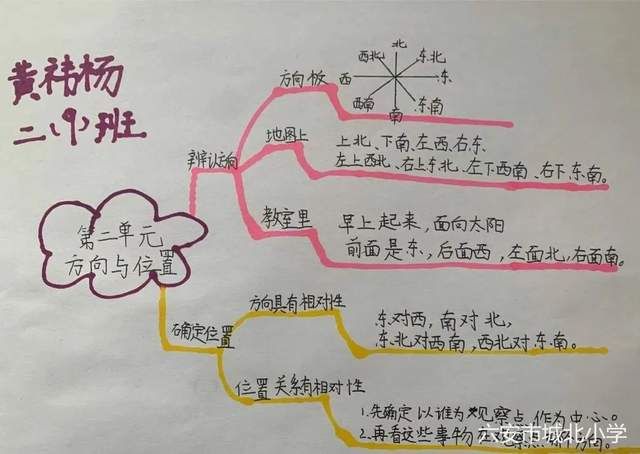 黄祎杨
二(9)班
第二单元
方向与位置
辨认方向
方向板
北
西北
东北
西
东
西南
东南
南
地图上
上北、下南、左西、右东、
左上西北、右上东北、左下西南、右下东南。
教室里
早上起来，面向太阳
前面是东，后面西，左面北，右面南。
确定位置
方向具有相对性
东对西，南对北，
东北对西南，西北对东南。
位置关系有相对性
1.先确定以谁为观察点，作为中心。
2.再看这些事物在观察点方向。
六安市城北小学